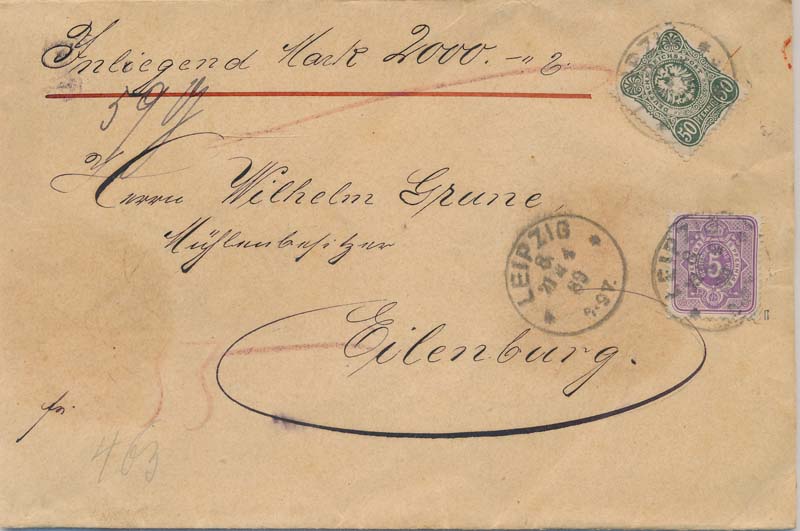 Inliegend Mark 2000.
Herrn Wilhelm Grune,
Mühlenbesitzer
Eilenburg.
fr.
463
LEIPZIG
8
89
50 50
LEIPZ
5